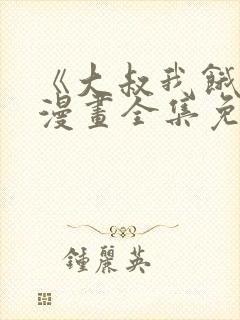 《大叔我餓
漫畫全集免
鍾麗英